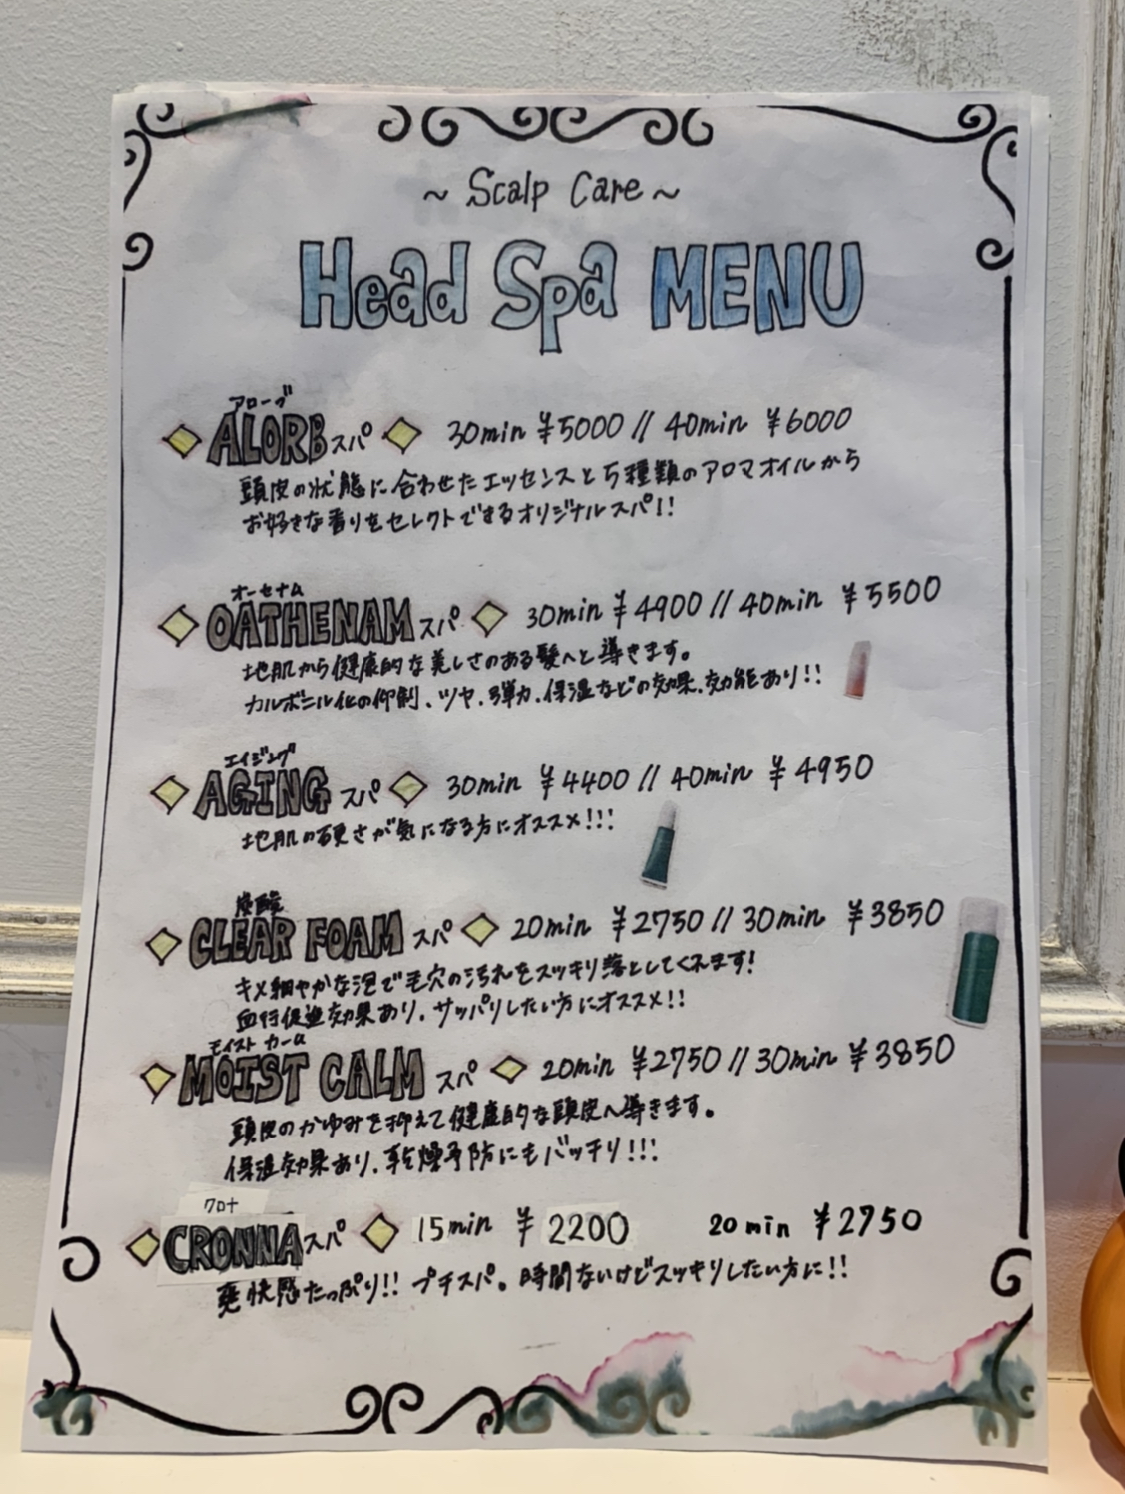 ~ Scalp Care ~
Head Spa MENU
アローブ
ALORBスパ 30min ¥5000 // 40min ¥6000
頭皮の状態に合わせたエッセンスと5種類のアロマオイルから
お好きな香りをセレクトできるオリジナルスパ!!
オーセナム
OATHENAM スパ 30min ¥4900 // 40min ¥5500
地肌から健康的な美しさのある髪へと導きます。
カルボニル化の抑制、ツヤ、弾力、保湿などの効果、効能あり!!
エイジング
AGING スパ 30min ¥4400 // 40min ¥4950
地肌の硬さが気になる方にオススメ!!!
炭酸
CLEAR FOAM スパ 20min ¥2750 // 30min ¥3850
キメ細やかな泡で毛穴の汚れをスッキリ落としてくれます!
血行促進効果あり、サッパリしたい方にオススメ!!
モイスト カーム
MOIST CALM スパ 20min ¥2750 // 30min ¥3850
頭皮のかゆみを抑えて健康的な頭皮へ導きます。
保湿効果あり、乾燥予防にもバッチリ!!!
クロナ
CRONNAスパ 15min ¥2200 20min ¥2750
爽快感たっぷり!! プチスパ。時間ないけどスッキリしたい方に!!